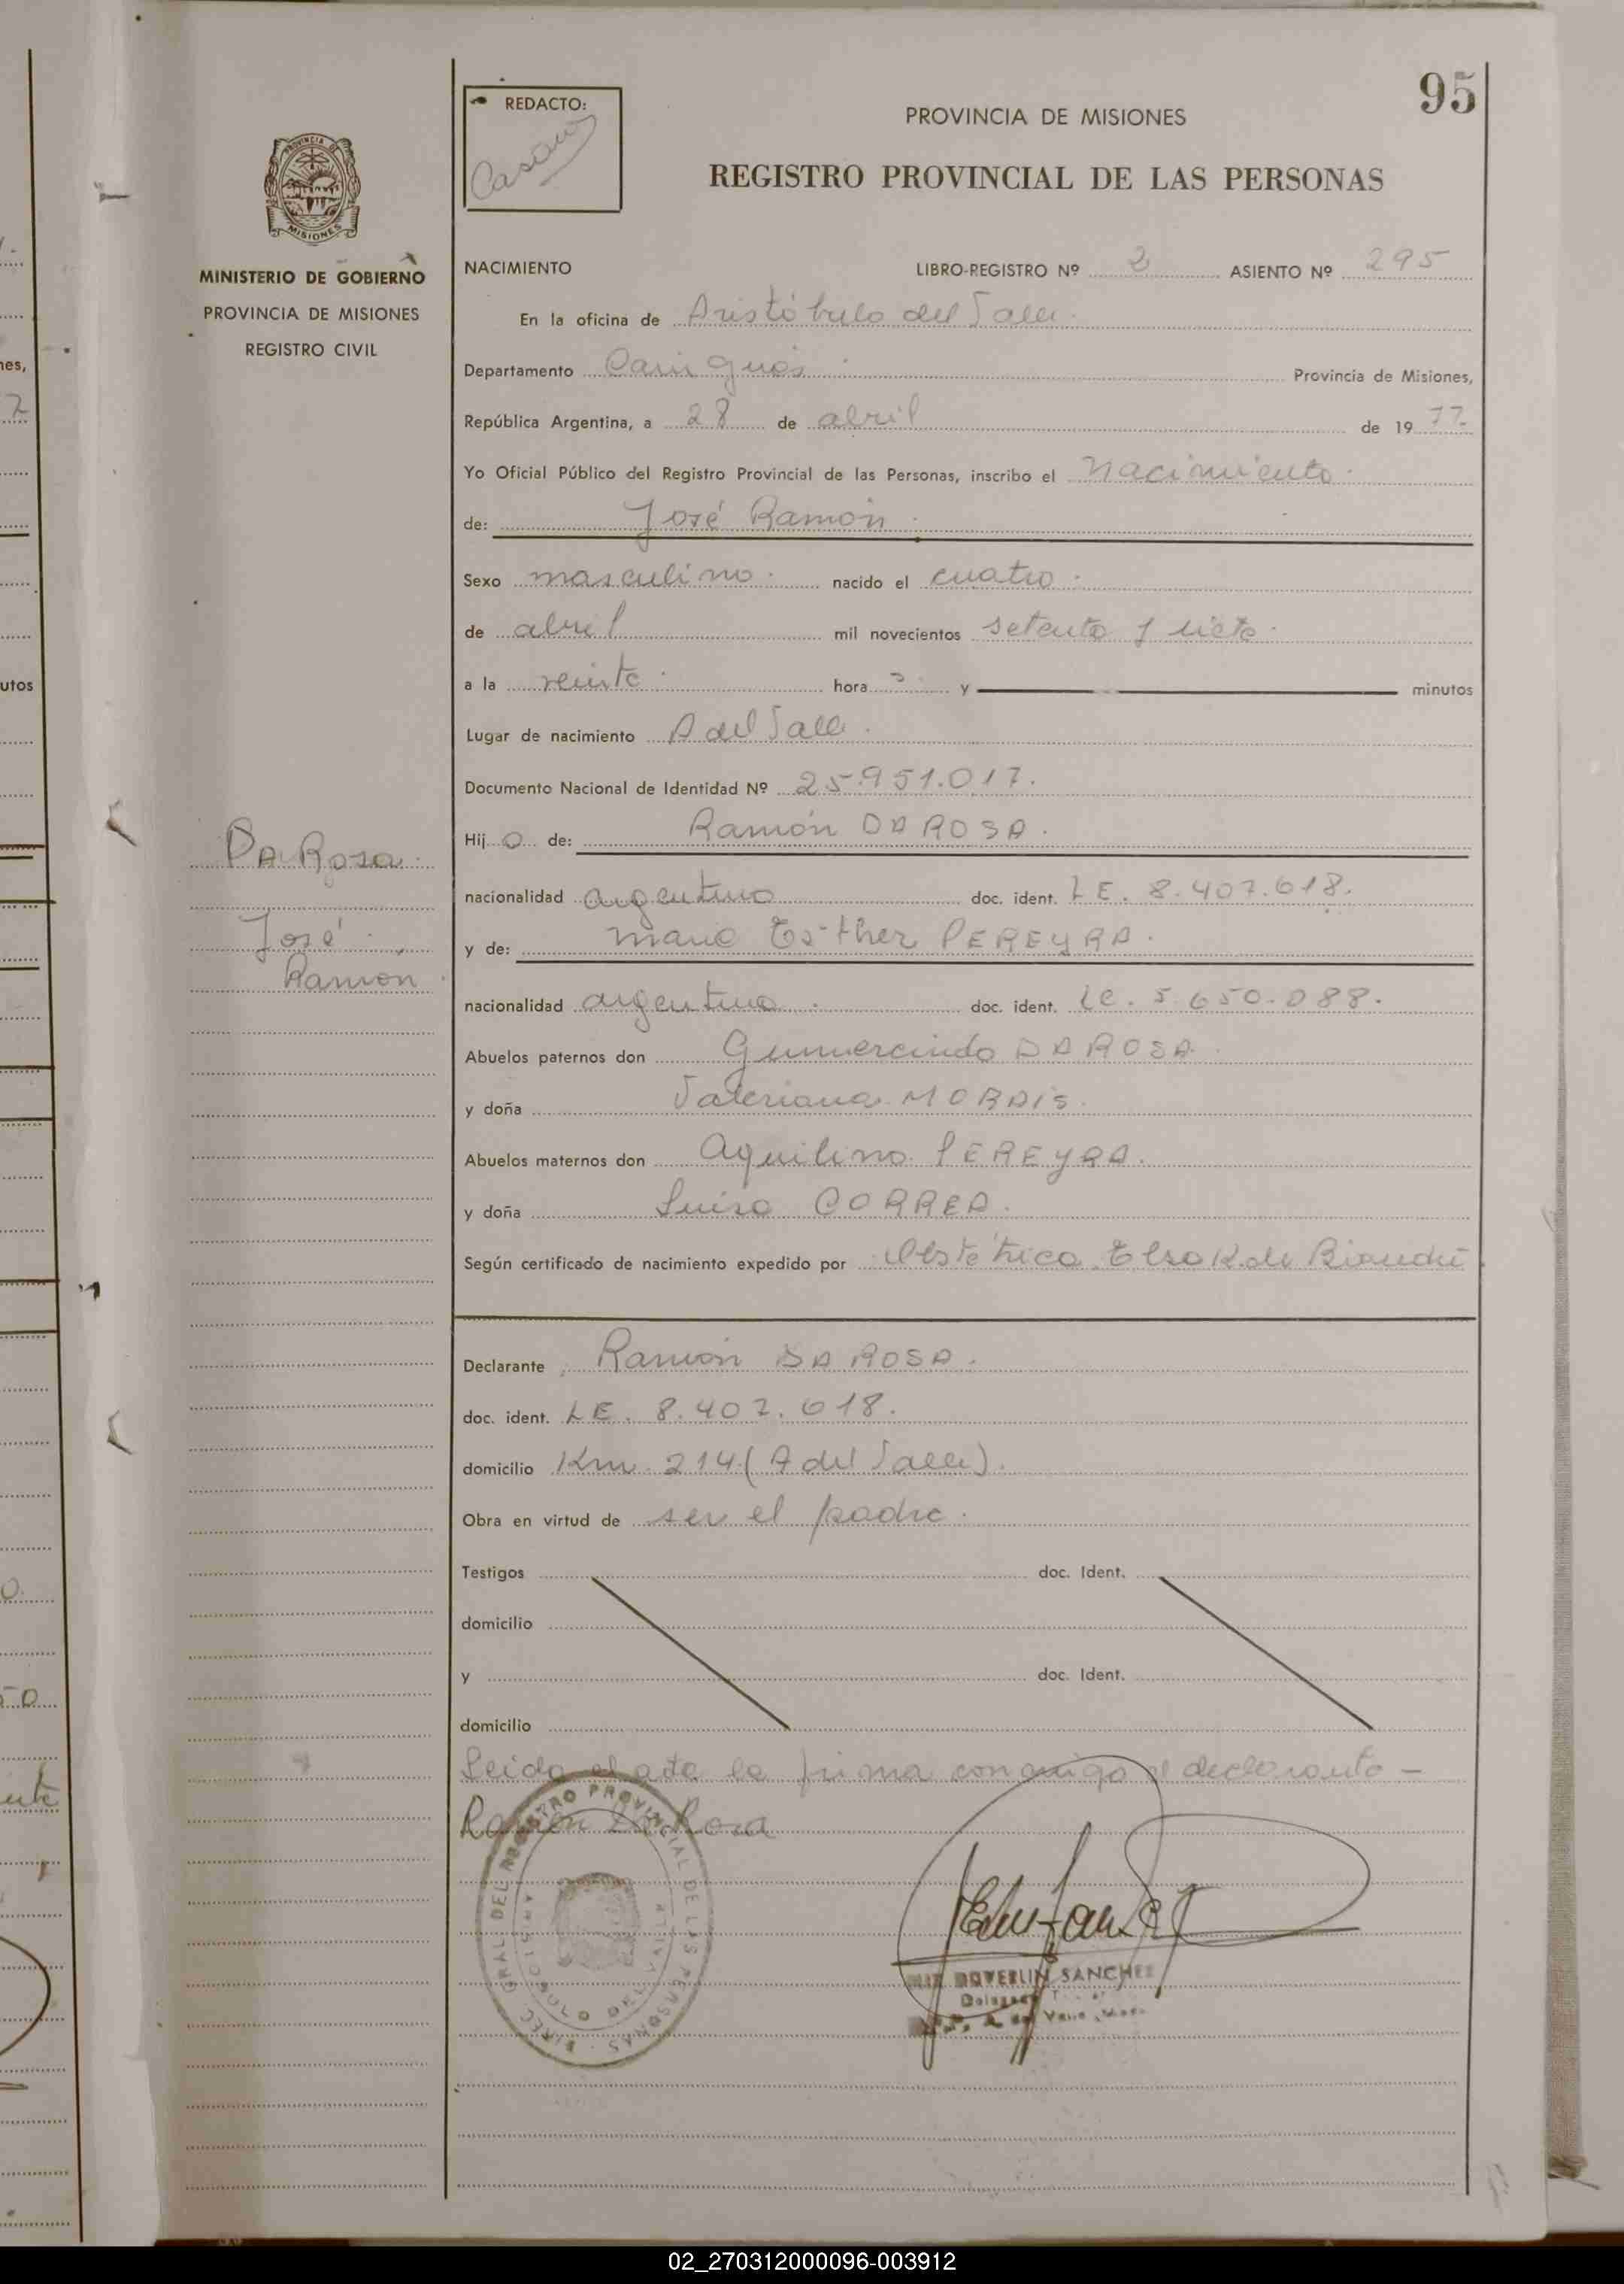 95
REDACTO:
PROVINCIA DE MISIONES
REGISTRO PROVINCIAL DE LAS PERSONAS
PROVINCIA DE
MISIONES
MINISTERIO DE GOBIERNO
PROVINCIA DE MISIONES
REGISTRO CIVIL
NACIMIENTO LIBRO-REGISTRO Nº 2 ASIENTO Nº 295
En la oficina de Aristóbulo del Valle.
Departamento Cainguás. Provincia de Misiones,
República Argentina, a 28 de abril de 1977.
Yo Oficial Público del Registro Provincial de las Personas, inscribo el nacimiento.
de: José Ramón.
Sexo masculino. nacido el cuatro.
de abril mil novecientos setenta y siete.
a la veinte. hora s y minutos
Lugar de nacimiento A del Valle.
Documento Nacional de Identidad Nº 25.951.017.
Hijo de: Ramón DA ROSA.
DA Rosa.
José
Ramón.
nacionalidad argentino doc. ident. LE. 8.407.618.
y de: María Esther PEREYRA.
nacionalidad argentina. doc. ident. LC. 5.650.088.
Abuelos paternos don Gumercindo DA ROSA.
y doña Valeriana MORAIS.
Abuelos maternos don Aquilino PEREYRA.
y doña Luisa CORREA.
Según certificado de nacimiento expedido por Obstétrica Elsa K. de
Declarante Ramón DA ROSA.
doc. ident. LE. 8.407.618.
domicilio Km. 214 (A del Valle).
Obra en virtud de ser el padre.
Testigos doc. Ident.
domicilio
y doc. Ident.
domicilio
Leida el acta la firma conmigo el declarante -
Ramon Da Rosa
DIREC. GRAL DEL REGISTRO PROVINCIAL DE LAS PERSONAS
ARISTOBULO DEL VALLE
SANCHEZ
02_270312000096-003912